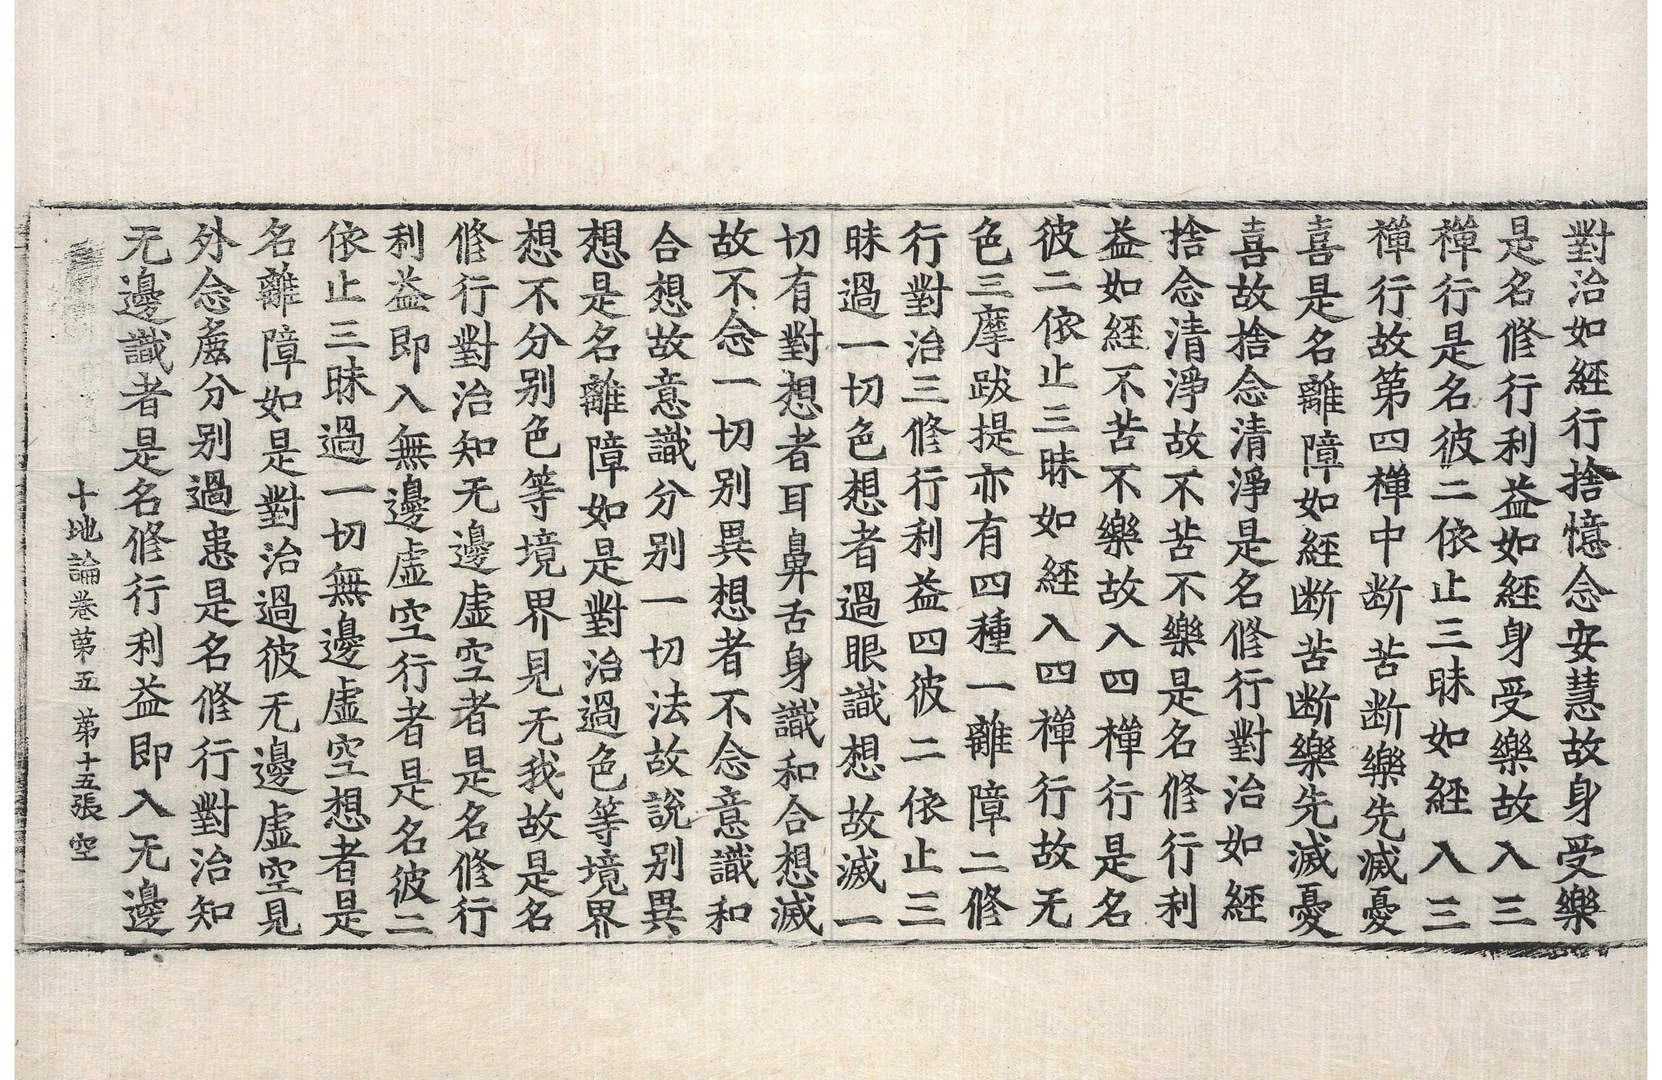 對治如經行捨憶念安慧故身受樂
是名修行利益如經身受樂故入三
禪行是名彼二依止三昧如經入三
禪行故第四禪中断苦断樂先滅憂
喜是名離障如經断苦断樂先滅憂
喜故捨念清淨是名修行對治如經
捨念清淨故不苦不樂是名修行利
益如經不苦不樂故入四禪行是名
彼二依止三昧如經入四禪行故无
色三摩跋提亦有四種一離障二修
行對治三修行利益四彼二依止三
昧過一切色想者過眼識想故滅一
切有對想者耳鼻舌身識和合想滅
故不念一切別異想者不念意識和
合想故意識分別一切法故說別異
想是名離障如是對治過色等境界
想不分別色等境界見无我故是名
修行對治知无邊虛空者是名修行
利益即入無邊虛空行者是名彼二
依止三昧過一切無邊虛空想者是
名離障如是對治過彼无邊虛空見
外念麁分別過患是名修行對治知
无邊識者是名修行利益即入无邊
十地論卷苐五 苐十五張 空